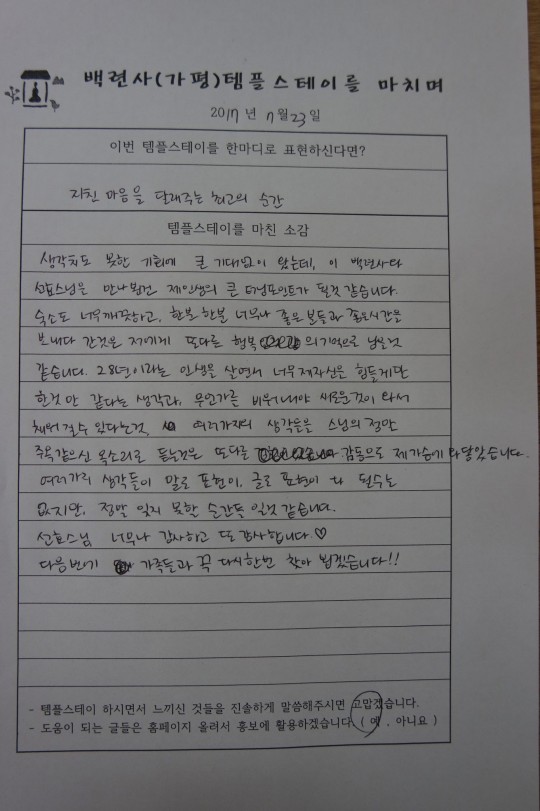 백련사(가평)템플스테이를 마치며
2017 년 7월 23일
이번 템플스테이를 한마디로 표현하신다면?
지친 마음을 달래주는 최고의 순간
템플스테이를 마친 소감
생각치도 못한 기회에 큰 기대없이 왔는데, 이 백련사와
선효스님은 만나뵌건 제인생의 큰 터닝포인트가 될것 같습니다.
숙소도 너무깨끗하고, 한분 한분 너무나 좋은 분들과 좋은시간을
보내다 간것은 저에게 또다른 행복 의기억으로 남을것
같습니다. 28년이라는 인생을 살면서 너무제자신을 힘들게만
한것만 같다는 생각과, 무언가를 비워내야 새로운것이 와서
채워질수 있다는것, 여러가지의 생각들을 스님의 정말
주옥같으신 목소리로 듣는것은 또다른 감동으로 제가슴에 와닿았습니다.
여러가지 생각들이 말로 표현이, 글로 표현이 다 될수는
없지만, 정말 잊지 못할 순간들 일것 같습니다.
선효스님 너무나 감사하고 또 감사합니다.♡
다음번에 가족들과 꼭 다시한번 찾아 뵙겠습니다!!
- 템플스테이 하시면서 느끼신 것들을 진솔하게 말씀해주시면 고맙겠습니다.
- 도움이 되는 글들은 홈페이지 올려서 홍보에 활용하겠습니다. ( 예 , 아니요 )